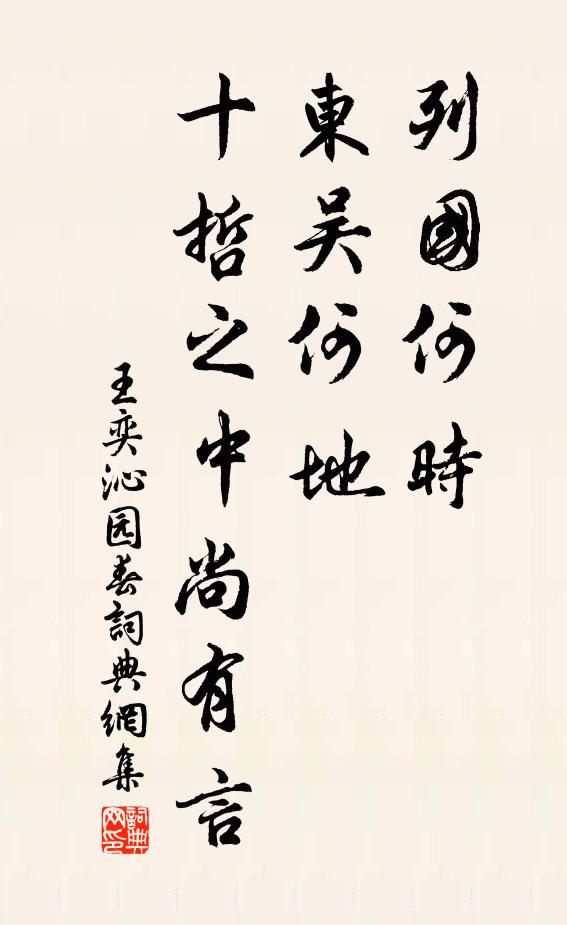 列國何時
東吴何地
十哲之中尚有言
王奕沁园春詞典網集
詞典网印